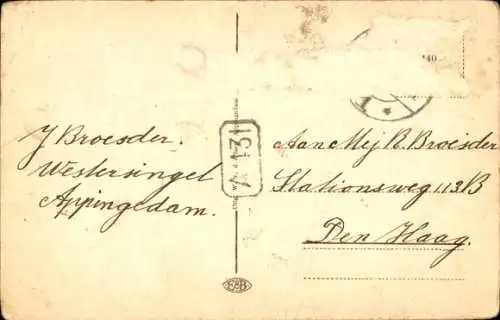 J Broesder.
Westersingel
Appingedam.
A 131
Aan Mej R. Broesder
Stationsweg 113B
Den Haag.
40
1